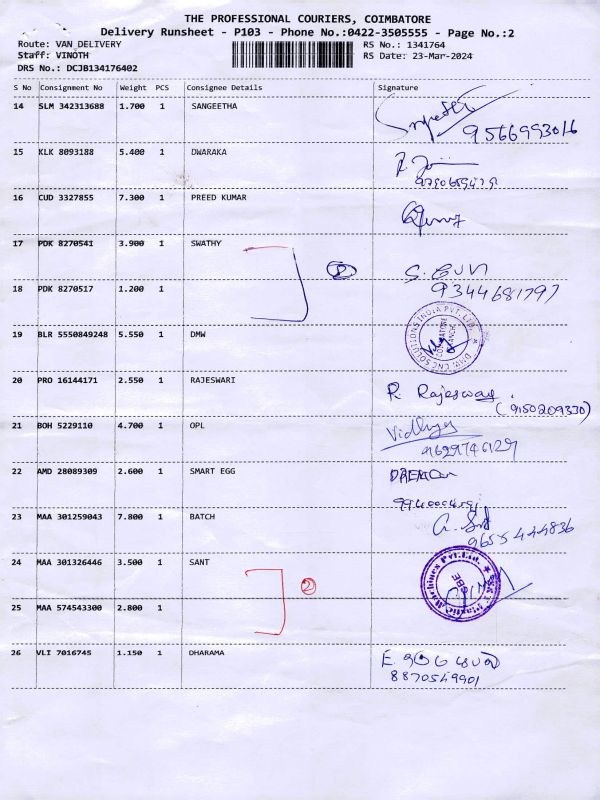 THE PROFESSIONAL COURIERS, COIMBATORE
Delivery Runsheet - P103 - Phone No.:0422-3505555 - Page No.:2
Route: VAN DELIVERY RS No.: 1341764
Staff: VINOTH RS Date: 23-Mar-2024
DRS No.: DCJB134176402
S No Consignment No Weight PCS Consignee Details Signature
14 SLM 342313688 1.700 1 SANGEETHA
9566993016
15 KLK 8093188 5.400 1 DWARAKA
16 CUD 3327855 7.300 1 PREED KUMAR
17 PDK 8270541 3.900 1 SWATHY
2
18 PDK 8270517 1.200 1
9344681797
19 BLR 5550849248 5.550 1 DMW
DMW CNC SOLUTIONS INDIA PVT. LTD.
COIMBATORE BRANCH
20 PRO 16144171 2.550 1 RAJESWARI R. Rajeswari
(9150209330)
21 BOH 5229110 4.700 1 OPL Vidhya
9629746129
22 AMD 28089309 2.600 1 SMART EGG
23 MAA 301259043 7.800 1 BATCH
9655444836
24 MAA 301326446 3.500 1 SANT
2
CBE
25 MAA 574543300 2.800 1
26 VLI 7016745 1.150 1 DHARAMA
8870549901